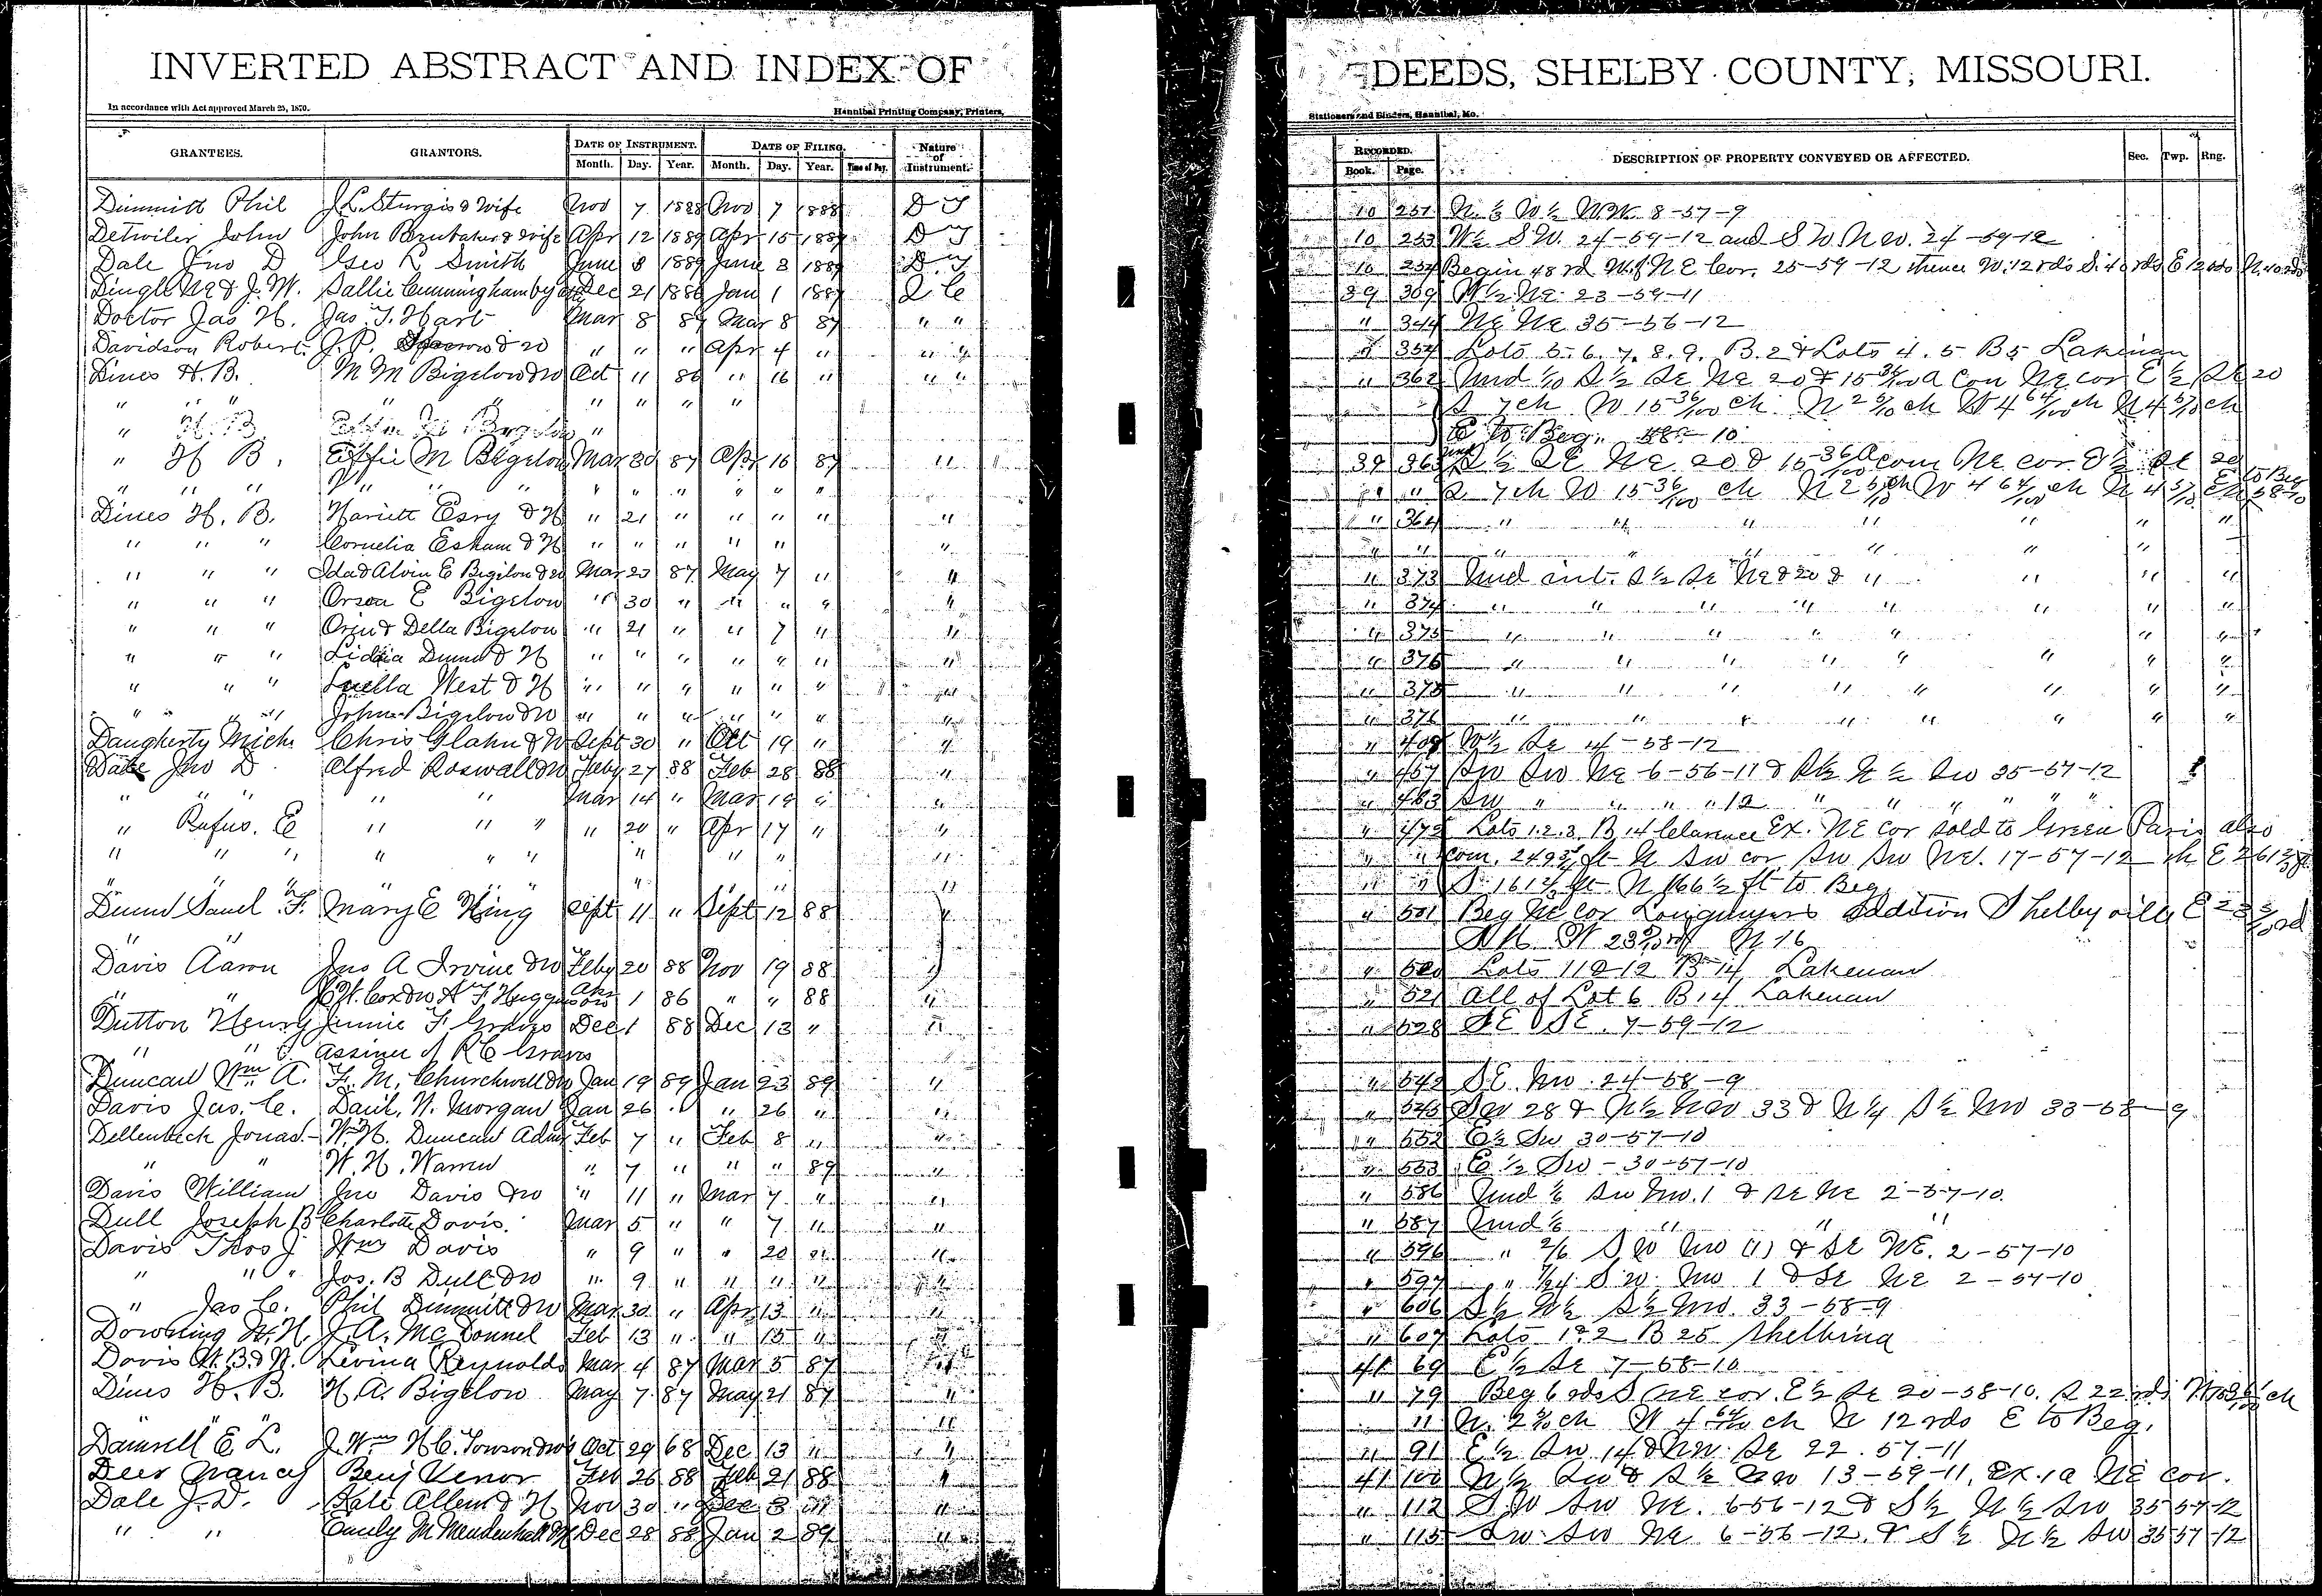 INVERTED ABSTRACT AND INDEX OF DEEDS, SHELBY COUNTY, MISSOURI.
In accordance with Act approved March 25, 1870. Hannibal Printing Company, Printers, Stationers and Binders, Hannibal, Mo.
GRANTEES. GRANTORS. DATE OF INSTRUMENT. DATE OF FILING. Nature of Instrument. RECORDED. DESCRIPTION OF PROPERTY CONVEYED OR AFFECTED. Sec. Twp. Rng.
Month. Day. Year. Month. Day. Year. Time of Day. Book. Page.
Dimmitt Phil J. L. Sturgis & Wife Nov 7 1888 Nov 7 1888 D T 10 251 N. ½ W ½ N.W. 8-57-9
Detwiler John John Brubaker & Wife Apr 12 1889 Apr 15 1889 D T 10 253 W½ S W. 24-59-12 and S W N W. 24-59-12
Dale Jno D Geo R Smith June 8 1889 June 8 1889 D. T 10 254 Begin 48 rd W. of N E Cor. 25-59-12 thence W. 12 rds S. 40 rds E 12 rds N. 40 rds
Dingle & J. W. Sallie Cunningham by Dec 21 1886 Jan 1 1887 Q C 39 309 W ½ Ne 23-59-11
Doctor Jas H. Jas. T. Hart Mar 8 87 Mar 8 87 " " " 344 Ne Ne 35-56-12
Davidson Robert. J. P. " " " Apr 4 " " " " 354 Lots 5. 6. 7. 8. 9. B. 2 & Lots 4. 5 B 5 Lakenan
Dines H. B. M M Bigelow & W Oct 11 86 " 16 " " " " 362 Und 1/10 S ½ Se Ne 20 & 15 36/100 a Com Ne cor E ½ Se 20
" " " " " " " " " S 7 ch W 15 36/100 ch. N 2 5/10 ch W 4 64/100 ch N 4 5/10 ch
" H. B. Bigelow " E to Beg. 58-10
" H B. Effie M Bigelow Mar 30 87 Apr 16 87 " 39 363 und S ½ SE Ne 20 & 15 36/100 a com Ne cor E ½ Se 20
" " " " " " " " " " " " " S 7 ch W 15 36/100 ch N 2 5/10 ch W 4 64/100 ch N 4 5/10 E to Beg 58-10
Dines H. B. Hariett Esry & H " 21 " " " " " " 364 " " " " " " "
" " " Cornelia Esham & H " " " " " " " " " " " " " "
" " " Ida & Alvin E Bigelow & W Mar 23 87 May 7 " " " 373 Und int. S ½ Se Ne & 20 & " " " "
" " " Orson E Bigelow " 30 " " " " " " 374 " " " " " " " "
" " " Orin & Della Bigelow " 21 " " 7 " " " 375 " " " " " " "
" " " Liddia Dunn & H " " " " " " " " 376 " " " " " " " "
" " " Luella West & H " " " " " " " " 375 " " " " " " " "
" " " John Bigelow & W " " " " " " " " 376 " " " " " " " "
Daugherty Mich. Chris Glahn & W Sept 30 " Oct 19 " " " 408 W½ Se 4-58-12
Dale Jno D Alfred Roswall & W Feby 27 88 Feb 28 88 " " 457 Sw Sw Ne 6-56-11 & S½ N ½ Sw 35-57-12
" " " " " Mar 14 " Mar 19 " " " 463 Sw " " " " 12 " " " " " "
" Rufus. E " " " " 20 " Apr 17 " " " 472 Lots 1. 2. 3, B 14 Clarence Ex. NE cor sold to Green Paris also
" " " " " " " " " " " " com. 249 ft N Sw cor Sw Sw Nd. 17-57-12 th E 261
" " " " " " " S. 161 ft N 166 ½ ft to Beg.
Dunn Saml. F. Mary E King Sept 11 " Sept 12 88 " " 501 Beg NE Cor Longmyers addition Shelbyville E
" " W N 16
Davis Aaron Jno A Irvine & W Feby 20 88 Nov 19 88 " " 520 Lots 11 & 12 B 14 Lakenan
" " Cox & W & T. Huggins 1 86 " " 88 " " 521 All of Lot 6 B 14 Lakenan
Dutton Henry Jennie F. Graves Dec 1 88 Dec 13 " " " 528 SE SE. 7-59-12
" " Assinee of R C Graves
Duncan Wm A. F. M. Churchwell & W Jan 19 89 Jan 23 89 " " 542 S E. Nw. 24-58-9
Davis Jas. C. Danl. N. Morgan Jan 26 " " 26 " " " 545 Sw 28 & N½ Nw 33 & N ¼ S½ Nw 33-58-9
Dellenbeck Jonas. W. H. Duncan Admr Feb 7 " Feb 8 " " " 552 E½ Sw 30-57-10
" " W. H. Warren " 7 " " " 89 " " 553 E ½ Sw - 30-57-10
Davis William Jno Davis & W " 11 " Mar 7 " " " 586 Und ⅙ Sw Nw. 1 & Se Ne 2-57-10.
Dull Joseph B Charlotte Davis. Mar 5 " " 7 " " " 587 Und ⅙ " " "
Davis Thos J Wm Davis " 9 " " 20 " " " 596 " 2/6 S W Nw (1) & Se NE. 2-57-10
" " " Jos. B Dull & W " 9 " " " " " " 597 " 1/24 S W. Nw 1 & Se Ne 2-57-10
" Jas C. Phil Dimmitt & W Mar 30 " Apr 13 " " " 606 S½ N½ S½ Nw. 33-58-9
Downing W. H. J. A. McDonnel Feb 13 " " 15 " " " 607 Lots 1 & 2 B 25 Shelbina
Davis W. B. & N. Levina Reynolds Mar 4 87 Mar 5 87 " 41 69 E ½ Se 7-58-10
Dines H. B. H. A. Bigelow May 7 87 May 21 87 " " 79 Beg 6 rds S Ne cor. E½ Se 20-58-10. S 22 rds
" " " " N. 2 5/10 ch W 4 64/100 ch N 12 rds E to Beg.
Damrell E. L. J. Wm H C. Towson & W Oct 29 68 Dec 13 " " " 91 E ½ Sw 14 & Nw. Se 22. 57-11
Deer Nancy Benj Venor Feb 26 88 Feb 21 88 " 41 100 N ½ Sw & S ½ Nw 13-59-11, Ex. 1 a Ne cor.
Dale J. D. Kate Allen & H Nov 30 " Dec 3 " " " 112 S W Sw Ne. 6-56-12 & S½ N ½ Sw 35 57-12
" " Emily M Mendenhall & H Dec 28 88 Jan 2 89 " " 115 Sw Sw Ne 6-56-12. & S ½ N ½ Sw 35 57-12